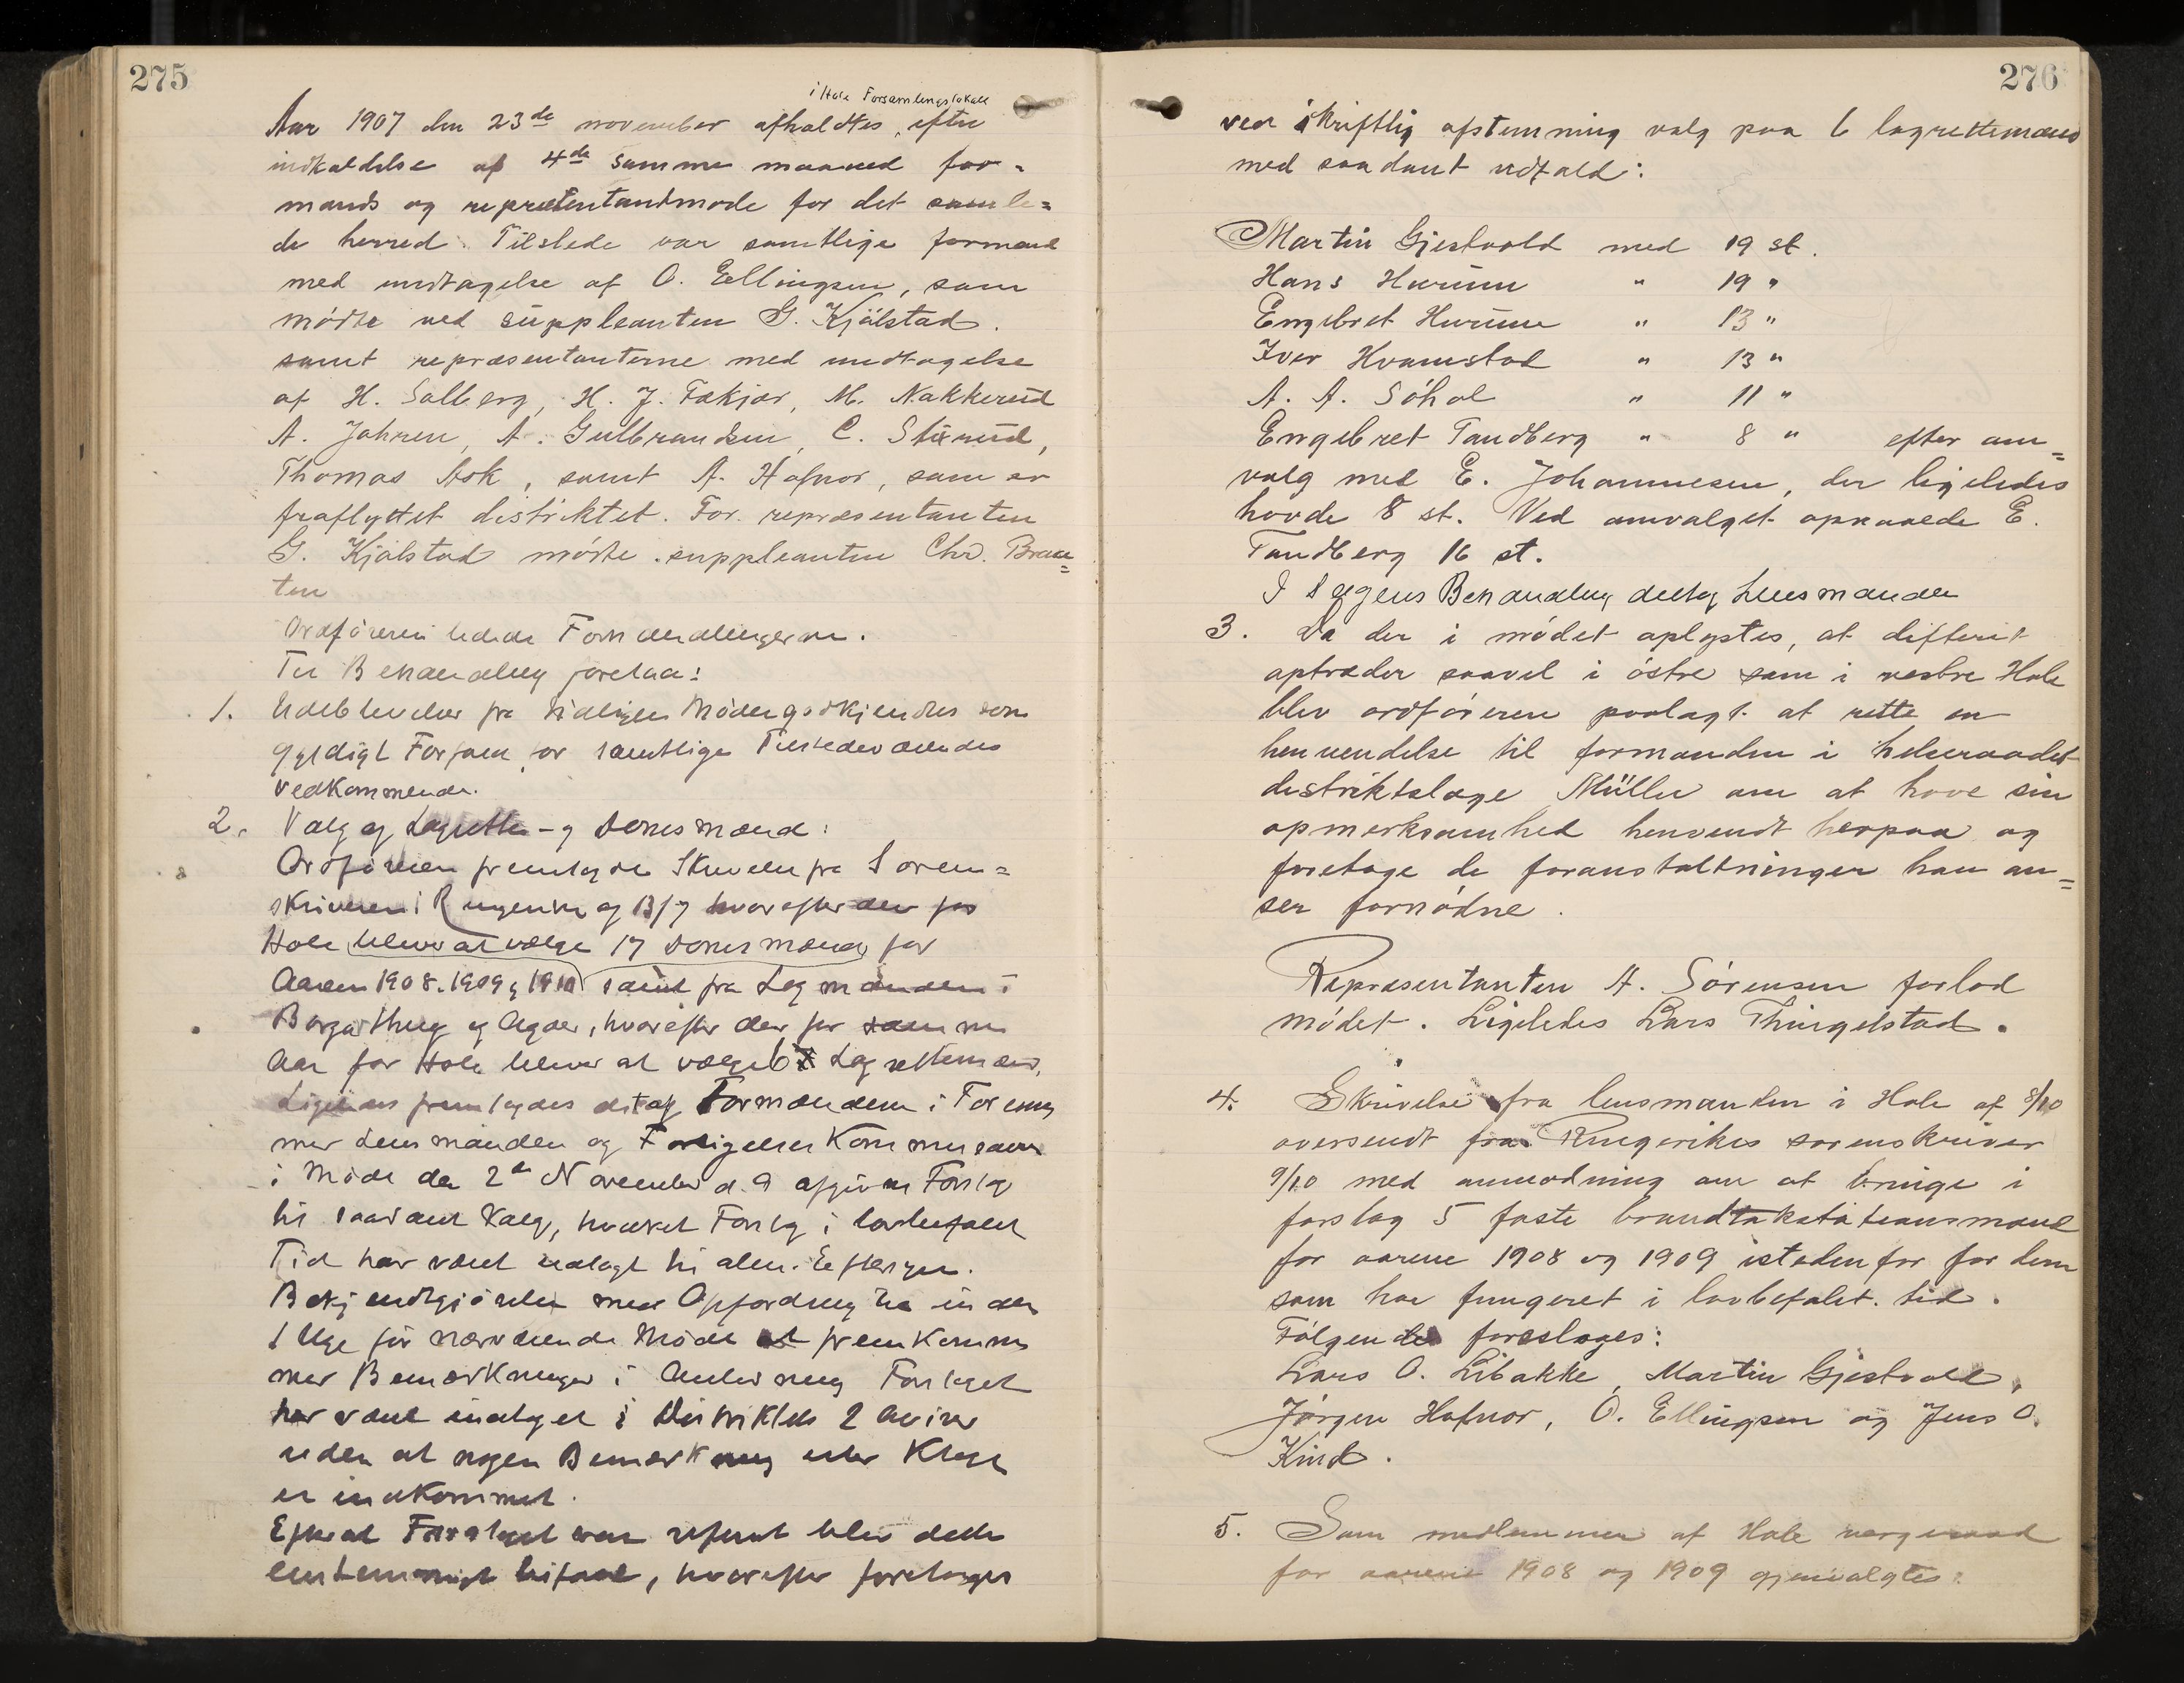 275
i Hole Forsamlingslokale
Aar 1907 den 23de november afholdtes, efter
indkaldelse af 4de samme maaned for-
mands og repræsentantmøde for det samle=
de herred. Tilstede var samtlige formænd
med undtagelse af O. Ellingsen, som
mødte ved suppleanten G. Kjølstad.
samt repræsentanterne med undtagelse
af H. Solberg, H. J. Fækjær, M. Nakkerud
A. Jahren, A. Gulbrandsen, C. Stixrud,
Thomas Ask, samt A. Hafnor, som er
fraflyttet distriktet. For repræsentanten
G. Kjølstad mødte suppleanten Chr. Braa=
ten
Ordføreren ledede Forhandlingerne.
Til Behandling forelaa:
1. Udeblivelser fra tidligere Møder godkjendtes som
gyldigt Forfald for samtlige Tilstedeværendes
vedkommende.
2. Valg af Lagrette- og Domsmænd:
Ordføreren fremlagde Skrivelse fra Soren=
skriveren i Ringerike af 13/7 hvorefter der for
Hole bliver at vælge 17 Domsmænd for
Aarene 1908. 1909 & 1910 samt fra Lagmanden i
Borgarthing og Agder, hvorefter der for samme
Aar for Hole bliver at vælge 6 Lagrettemænd.
Ligeledes fremlagdes det af Formændene i Forening
med Lensmanden og Forligelses Kommissærer
i Møde den 2de November d. A afgivne Forslag
til saadant Valg, hvilket Forslag i lovbefalet
Tid har været udlagt til alm. Eftersyn.
Bekjendtgjørelse med Opfordring til inden
1 Uge før nærværende Møde at fremkomme
med Bemærkninger i Anledning Forslaget
har været indtaget i Distriktets 2 Aviser
uden at nogen Bemærkning eller Klage
er indkommet.
Efterat Forslaget var referert blev dette
enstemmigt bifaldt, hvorefter foretoges
276
ved skriftlig afstemning valg paa 6 lagrettemænd
med saadant udfald:
Martin Gjestvold med 19 st.
Hans Hurum " 19 "
Engebret Hurum " 13 "
Iver Hvamstad " 13 "
A. A. Søhol " 11 "
Engebret Tandberg " 8 " efter om=
valg med E. Johannesen, der ligeledes
havde 8 st. Ved omvalget opnaaede E.
Tandberg 16 st.
I Sagens Behandling deltog Lensmanden
3. Da der i mødet oplystes, at difterit
optræder saavel i østre som i vestre Hole
blev ordføreren paalagt at rette en
henvendelse til formanden i helseraadet
distriktslæge Müller om at have sin
opmerksomhed henvendt herpaa og
foretage de foranstaltninger han an=
ser fornødne.
Repræsentanten A. Sørensen forlod
mødet. Ligeledes Lars Thingelstad.
4. Skrivelse fra lensmanden i Hole af 8/10
oversendt fra Ringerikes sorenskriver
9/10 med anmodning om at bringe i
forslag 5 faste brandtakstationsmænd
for aarene 1908 og 1909 istedenfor for dem
som har fungeret i lovbefalet tid.
Følgende foresloges:
Lars O. Libakke, Martin Gjestvold,
Jørgen Hafnor, O. Ellingsen og Jens O.
Kind.
5. Som medlemmer af Hole vergeraad
for aarene 1908 og 1909 gjenvalgtes: